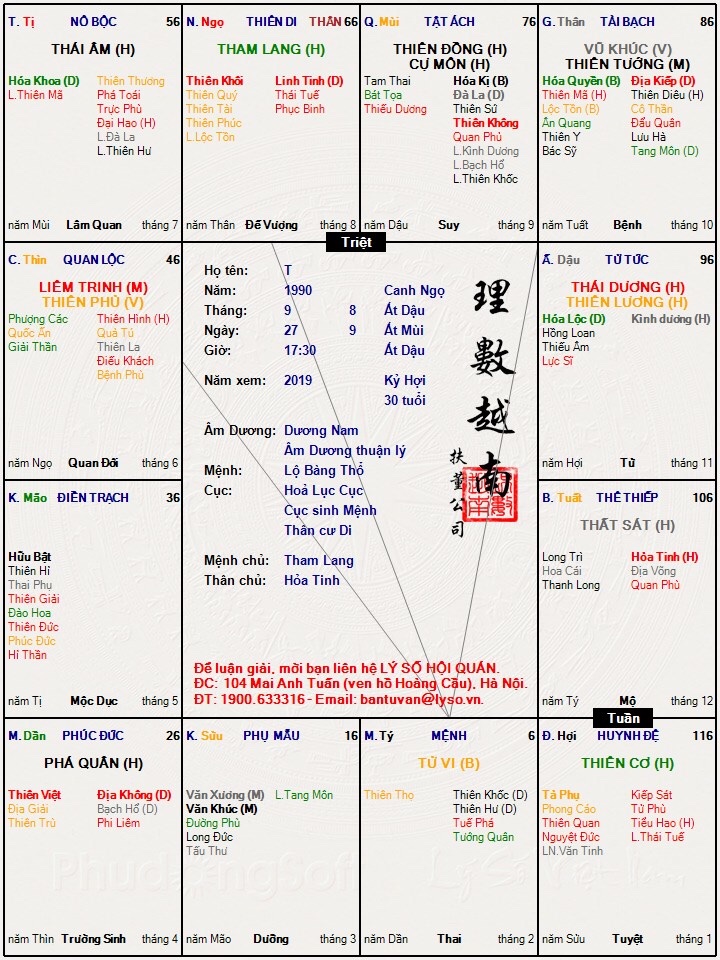 T. Tị NÔ BỘC 56
THÁI ÂM (H)
Hóa Khoa (D) Thiên Thương
L.Thiên Mã Phá Toái
Trực Phù
Đại Hao (H)
L.Đà La
L.Thiên Hư
năm Mùi Lâm Quan tháng 7
N. Ngọ THIÊN DI THÂN 66
THAM LANG (H)
Thiên Khôi Linh Tinh (D)
Thiên Quý Thái Tuế
Thiên Tài Phục Binh
Thiên Phúc
L.Lộc Tồn
năm Thân Đế Vượng tháng 8
Q. Mùi TẬT ÁCH 76
THIÊN ĐỒNG (H)
CỰ MÔN (H)
Tam Thai Hóa Kị (B)
Bát Tọa Đà La (D)
Thiếu Dương Thiên Sứ
Thiên Không
Quan Phủ
L.Kình Dương
L.Bạch Hổ
L.Thiên Khốc
năm Dậu Suy tháng 9
G. Thân TÀI BẠCH 86
VŨ KHÚC (V)
THIÊN TƯỚNG (M)
Hóa Quyền (B) Địa Kiếp (D)
Thiên Mã (H) Thiên Diêu (H)
Lộc Tồn (B) Cô Thần
Ân Quang Đẩu Quân
Thiên Y Lưu Hà
Bác Sỹ Tang Môn (D)
năm Tuất Bệnh tháng 10
Triệt
C. Thìn QUAN LỘC 46
LIÊM TRINH (M)
THIÊN PHỦ (V)
Phượng Các Thiên Hình (H)
Quốc Ấn Quả Tú
Giải Thần Thiên La
Điếu Khách
Bệnh Phù
năm Ngọ Quan Đới tháng 6
Họ tên: T
Năm: 1990 Canh Ngọ
Tháng: 9 8 Ất Dậu
Ngày: 27 9 Ất Mùi
Giờ: 17:30 Ất Dậu
Năm xem: 2019 Kỷ Hợi
30 tuổi
Âm Dương: Dương Nam
Âm Dương thuận lý
Mệnh: Lộ Bàng Thổ
Cục: Hoả Lục Cục
Cục sinh Mệnh
Thân cư Di
Mệnh chủ: Tham Lang
Thân chủ: Hỏa Tinh
理數越南
扶董公司
Để luận giải, mời bạn liên hệ LÝ SỐ HỘI QUÁN.
ĐC: 104 Mai Anh Tuấn (ven hồ Hoàng Cầu), Hà Nội.
ĐT: 1900.633316 - Email: bantuvan@lyso.vn.
Ấ. Dậu TỬ TỨC 96
THÁI DƯƠNG (H)
THIÊN LƯƠNG (H)
Hóa Lộc (D) Kình dương (H)
Hồng Loan
Thiếu Âm
Lực Sĩ
năm Hợi Tử tháng 11
K. Mão ĐIỀN TRẠCH 36
Hữu Bật
Thiên Hỉ
Thai Phụ
Thiên Giải
Đào Hoa
Thiên Đức
Phúc Đức
Hỉ Thần
năm Tị Mộc Dục tháng 5
B. Tuất THÊ THIẾP 106
THẤT SÁT (H)
Long Trì Hỏa Tinh (H)
Hoa Cái Địa Võng
Thanh Long Quan Phù
năm Tý Mộ tháng 12
Tuần
M. Dần PHÚC ĐỨC 26
PHÁ QUÂN (H)
Thiên Việt Địa Không (D)
Địa Giải Bạch Hổ (D)
Thiên Trù Phi Liêm
năm Thìn Trường Sinh tháng 4
K. Sửu PHỤ MẪU 16
Văn Xương (M) L.Tang Môn
Văn Khúc (M)
Đường Phù
Long Đức
Tấu Thư
năm Mão Dưỡng tháng 3
M. Tý MỆNH 6
TỬ VI (B)
Thiên Thọ Thiên Khốc (D)
Thiên Hư (D)
Tuế Phá
Tướng Quân
năm Dần Thai tháng 2
Đ. Hợi HUYNH ĐỆ 116
THIÊN CƠ (H)
Tả Phụ Kiếp Sát
Phong Cáo Tử Phù
Thiên Quan Tiểu Hao (H)
Nguyệt Đức L.Thái Tuế
LN.Văn Tinh
năm Sửu Tuyệt tháng 1
Phudongsoft
Lý Số Việt Nam